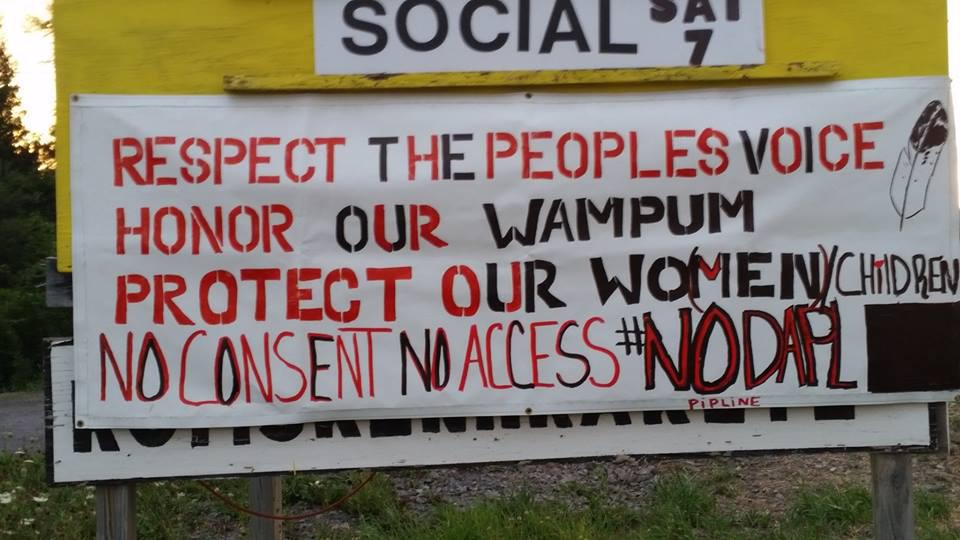 SOCIAL SAT 7
RESPECT THE PEOPLES VOICE
HONOR OUR WAMPUM
PROTECT OUR WO(MEN)/CHiLDREN
NO CONSENT NO ACCESS #NODAPL
PiPLiNE